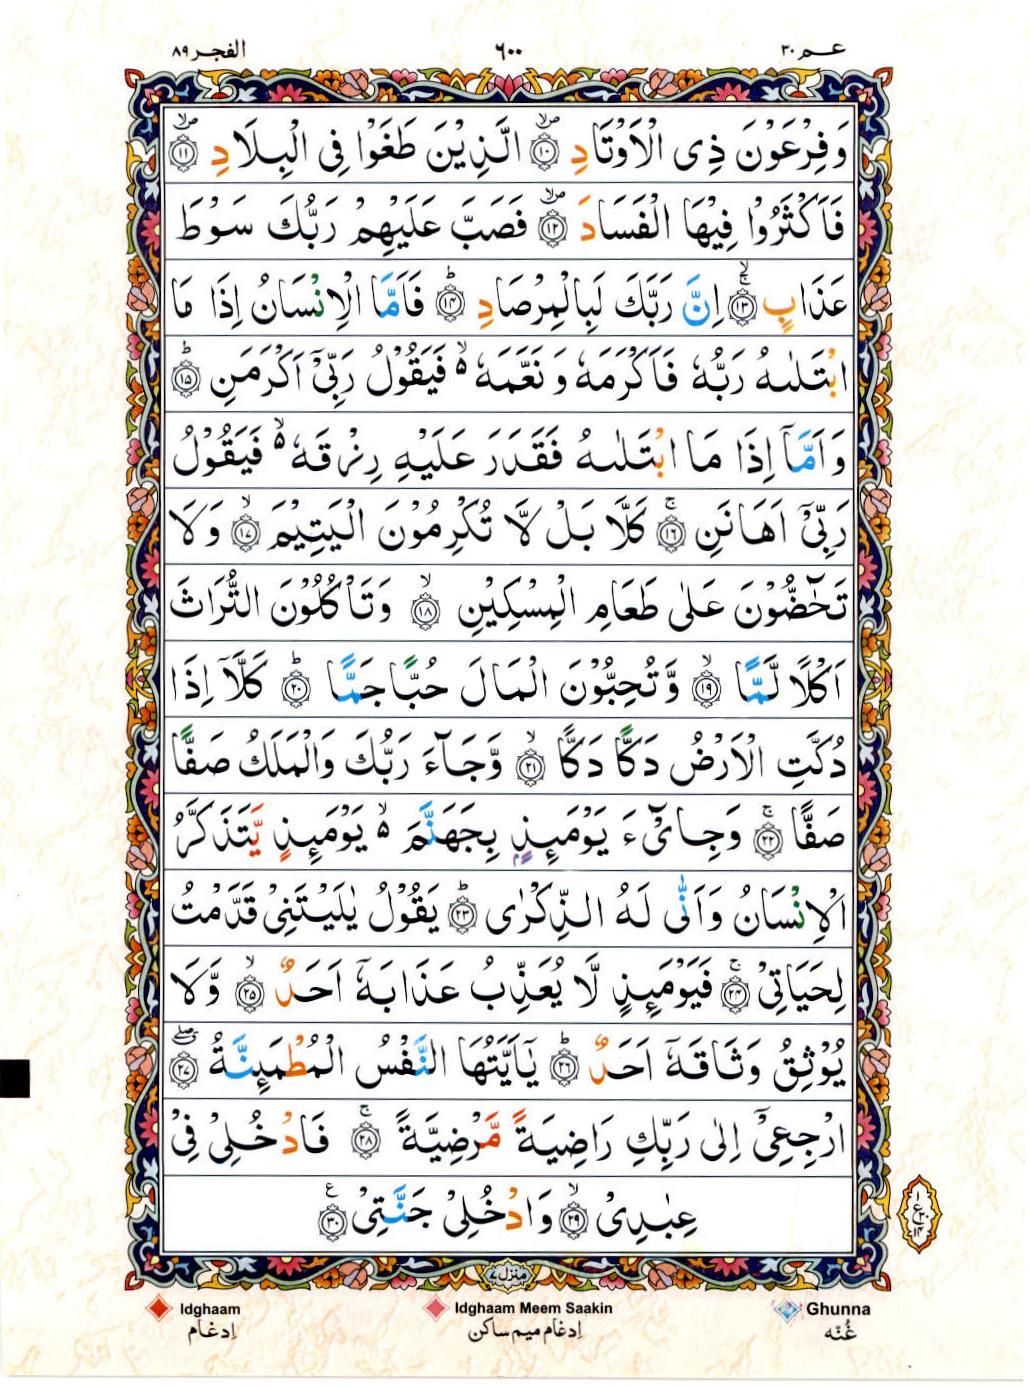 عـــم ٣٠
٦٠٠
الفجر ٨٩
وَفِرْعَوْنَ ذِى الْاَوْتَادِ ۙ‏ ﴿۱۰﴾ الَّذِيْنَ طَغَوْا فِى الْبِلَادِ ۙ‏ ﴿۱۱﴾
فَاَكْثَرُوْا فِيْهَا الْفَسَادَ ۙ‏ ﴿۱۲﴾ فَصَبَّ عَلَيْهِمْ رَبُّكَ سَوْطَ
عَذَابٍ ۚ ۙ‏ ﴿۱۳﴾ اِنَّ رَبَّكَ لَبِالْمِرْصَادِ ؕ‏ ﴿۱۴﴾ فَاَمَّا الْاِنْسَانُ اِذَا مَا
ابْتَلٰٮهُ رَبُّهٗ فَاَكْرَمَهٗ وَ نَعَّمَهٗ ۙ۬ فَيَقُوْلُ رَبِّىْۤ اَكْرَمَنِ ؕ‏ ﴿۱۵﴾
وَاَمَّاۤ اِذَا مَا ابْتَلٰٮهُ فَقَدَرَ عَلَيْهِ رِزْقَهٗ ۙ۬ فَيَقُوْلُ
رَبِّىْۤ اَهَانَنِ ۚ‏ ﴿۱۶﴾ كَلَّا بَلْ لَّا تُكْرِمُوْنَ الْيَتِيْمَ ۙ‏ ﴿۱۷﴾ وَلَا
تَحٰٓضُّوْنَ عَلٰى طَعَامِ الْمِسْكِيْنِ ۙ‏ ﴿۱۸﴾ وَتَاْكُلُوْنَ التُّرَاثَ
اَكْلًا لَّـمًّا ۙ‏ ﴿۱۹﴾ وَّتُحِبُّوْنَ الْمَالَ حُبًّا جَمًّا ؕ‏ ﴿۲۰﴾ كَلَّاۤ اِذَا
دُكَّتِ الْاَرْضُ دَكًّا دَكًّا ۙ‏ ﴿۲۱﴾ وَّجَآءَ رَبُّكَ وَالْمَلَكُ صَفًّا
صَفًّا ۚ‏ ﴿۲۲﴾ وَجِاىْٓءَ يَوْمَٮِٕذٍۢ بِجَهَنَّمَ ۙ۬ يَوْمَٮِٕذٍ يَّتَذَكَّرُ
الْاِنْسَانُ وَاَنّٰى لَهُ الذِّكْرٰى ؕ‏ ﴿۲۳﴾ يَقُوْلُ يٰلَيْتَنِىْ قَدَّمْتُ
لِحَيَاتِىْ ۚ‏ ﴿۲۴﴾ فَيَوْمَٮِٕذٍ لَّا يُعَذِّبُ عَذَابَهٗۤ اَحَدٌ ۙ‏ ﴿۲۵﴾ وَّلَا
يُوْثِقُ وَثَاقَهٗۤ اَحَدٌ ؕ‏ ﴿۲۶﴾ يٰۤاَيَّتُهَا النَّفْسُ الْمُطْمَٮِٕنَّةُ ۖ‏ ﴿۲۷﴾
ارْجِعِىْۤ اِلٰى رَبِّكِ رَاضِيَةً مَّرْضِيَّةً ۚ‏ ﴿۲۸﴾ فَادْخُلِىْ فِىْ
عِبٰدِىْ ۙ‏ ﴿۲۹﴾ وَادْخُلِىْ جَنَّتِىْ ‏ ﴿۳۰﴾
ع
منزل ٧
Idghaam
Idghaam Meem Saakin
Ghunna
اِدغَام
اِدغَام مِيم سَاكن
غُنّه